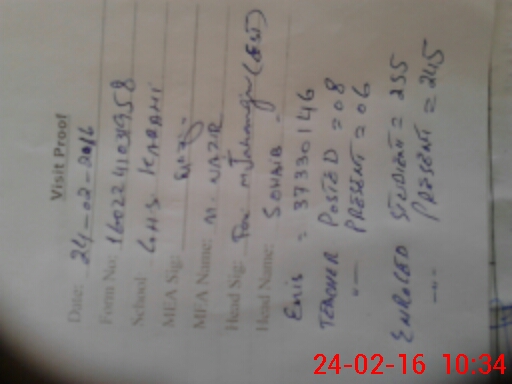 Visit Proof
Date: 24-02-2016
Form No: 160224103958
School GHS KARAMI
MEA Sig:
MEA Name: M. NAZIR
Head Sig: For
Head Name: SOHAIB
Emis = 37330146
TEACHER POSTED = 08
" — PRESENT = 06
ENROLED STUDENT = 255
" — PRESENT = 245
24-02-16 10:34